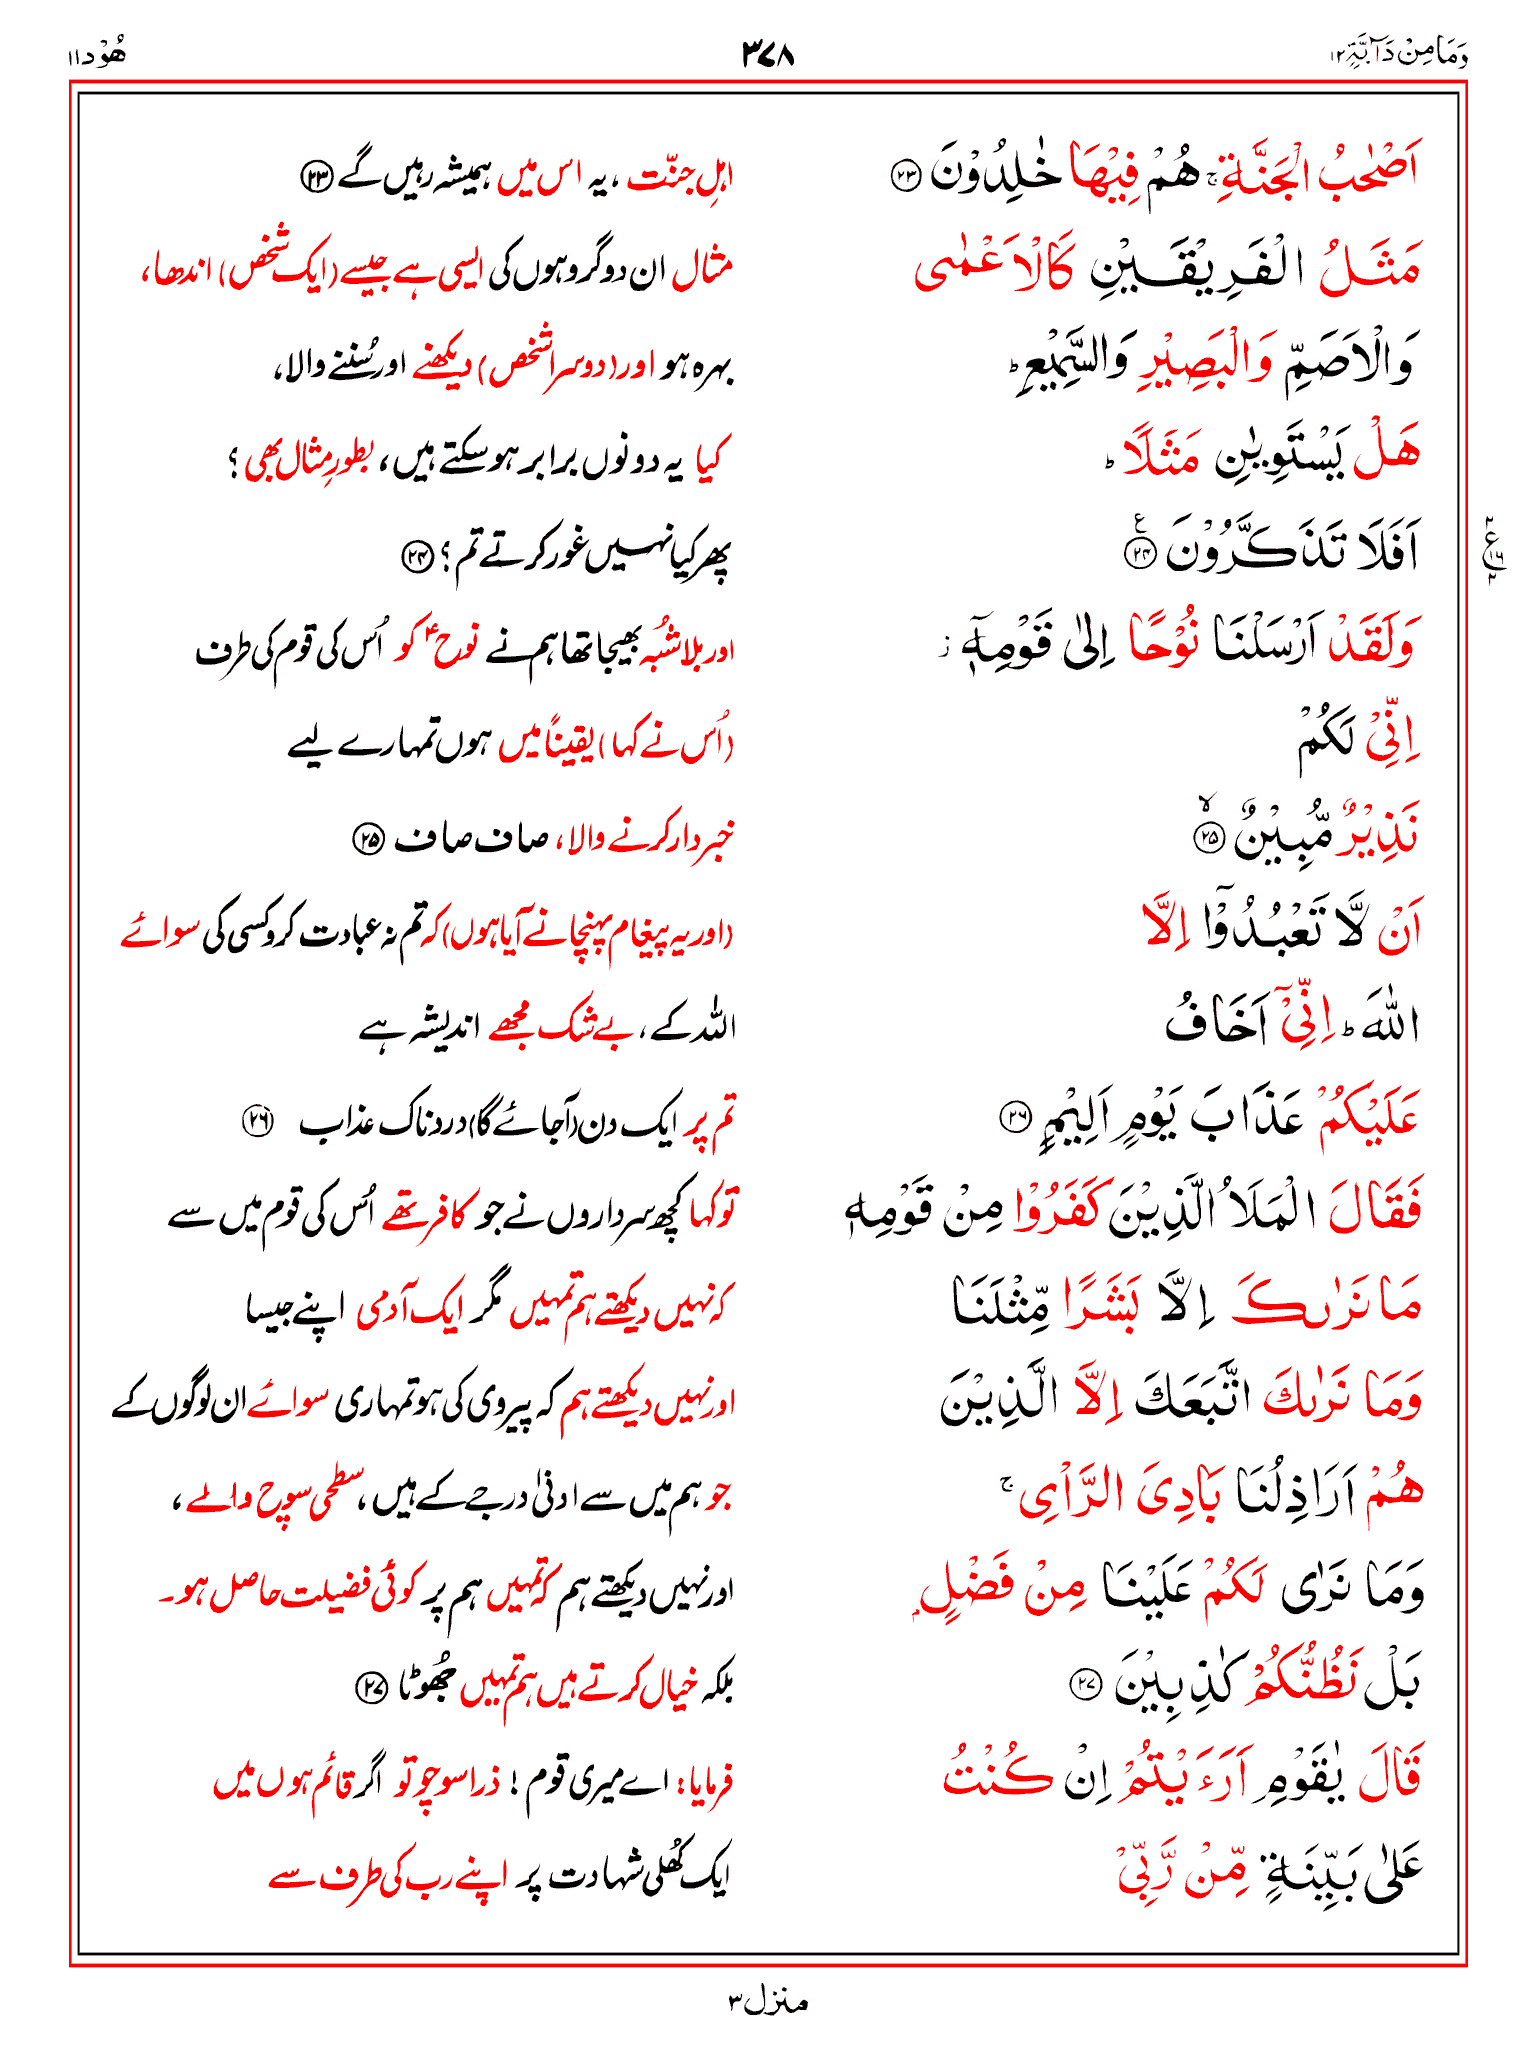 وَمَا مِنْ دَآبَّةٍ ١٢ ٣٧٨ هُوْد ١١
اَصْحٰبُ الْجَنَّةِ ۚ هُمْ فِيْهَا خٰلِدُوْنَ ﴿٢٣﴾ اہلِ جنّت ، یہ اس میں ہمیشہ رہیں گے ﴿۲۳﴾
مَثَلُ الْفَرِيْقَيْنِ كَالْاَعْمٰى مثال ان دو گروہوں کی ایسی ہے جیسے (ایک شخص) اندھا،
وَالْاَصَمِّ وَالْبَصِيْرِ وَالسَّمِيْعِ ؕ بہرہ ہو اور (دوسرا شخص) دیکھنے اور سُننے والا،
هَلْ يَسْتَوِيٰنِ مَثَلًا ؕ کیا یہ دونوں برابر ہو سکتے ہیں، بطورِ مثال بھی ؟
اَفَلَا تَذَكَّرُوْنَ ﴿٢٤﴾ ع پھر کیا نہیں غور کرتے تم ؟ ﴿۲۴﴾
وَلَقَدْ اَرْسَلْنَا نُوْحًا اِلٰى قَوْمِهٖۤ ز اور بلا شُبہ بھیجا تھا ہم نے نوحؑ کو اُس کی قوم کی طرف
اِنِّىْ لَكُمْ (اُس نے کہا) یقیناً میں ہوں تمہارے لیے
نَذِيْرٌ مُّبِيْنٌ ﴿٢٥﴾ ۙ خبردار کرنے والا، صاف صاف ﴿۲۵﴾
اَنْ لَّا تَعْبُدُوْۤا اِلَّا (اور یہ پیغام پہنچانے آیا ہوں) کہ تم نہ عبادت کرو کسی کی سوائے
اللّٰهَ ؕ اِنِّىْۤ اَخَافُ اللہ کے ، بے شک مجھے اندیشہ ہے
عَلَيْكُمْ عَذَابَ يَوْمٍ اَلِيْمٍ ﴿٢٦﴾ تم پر ایک دن (آجائے گا) دردناک عذاب ﴿۲۶﴾
فَقَالَ الْمَلَاُ الَّذِيْنَ كَفَرُوْا مِنْ قَوْمِهٖ تو کہا کچھ سرداروں نے جو کافر تھے اُس کی قوم میں سے
مَا نَرٰىكَ اِلَّا بَشَرًا مِّثْلَنَا کہ نہیں دیکھتے ہم تمہیں مگر ایک آدمی اپنے جیسا
وَمَا نَرٰىكَ اتَّبَعَكَ اِلَّا الَّذِيْنَ اور نہیں دیکھتے ہم کہ پیروی کی ہو تمہاری سوائے ان لوگوں کے
هُمْ اَرَاذِلُنَا بَادِىَ الرَّاْىِ ۚ جو ہم میں سے ادنیٰ درجے کے ہیں ، سطحی سوچ والے ،
وَمَا نَرٰى لَكُمْ عَلَيْنَا مِنْ فَضْلٍۭ اور نہیں دیکھتے ہم کہ تمہیں ہم پر کوئی فضیلت حاصل ہو۔
بَلْ نَظُنُّكُمْ كٰذِبِيْنَ ﴿٢٧﴾ بلکہ خیال کرتے ہیں ہم تمہیں جُھوٹا ﴿۲۷﴾
قَالَ يٰقَوْمِ اَرَءَيْتُمْ اِنْ كُنْتُ فرمایا: اے میری قوم ! ذرا سوچو تو اگر قائم ہوں میں
عَلٰى بَيِّنَةٍ مِّنْ رَّبِّىْ ایک کُھلی شہادت پر اپنے رب کی طرف سے
منزل ٣